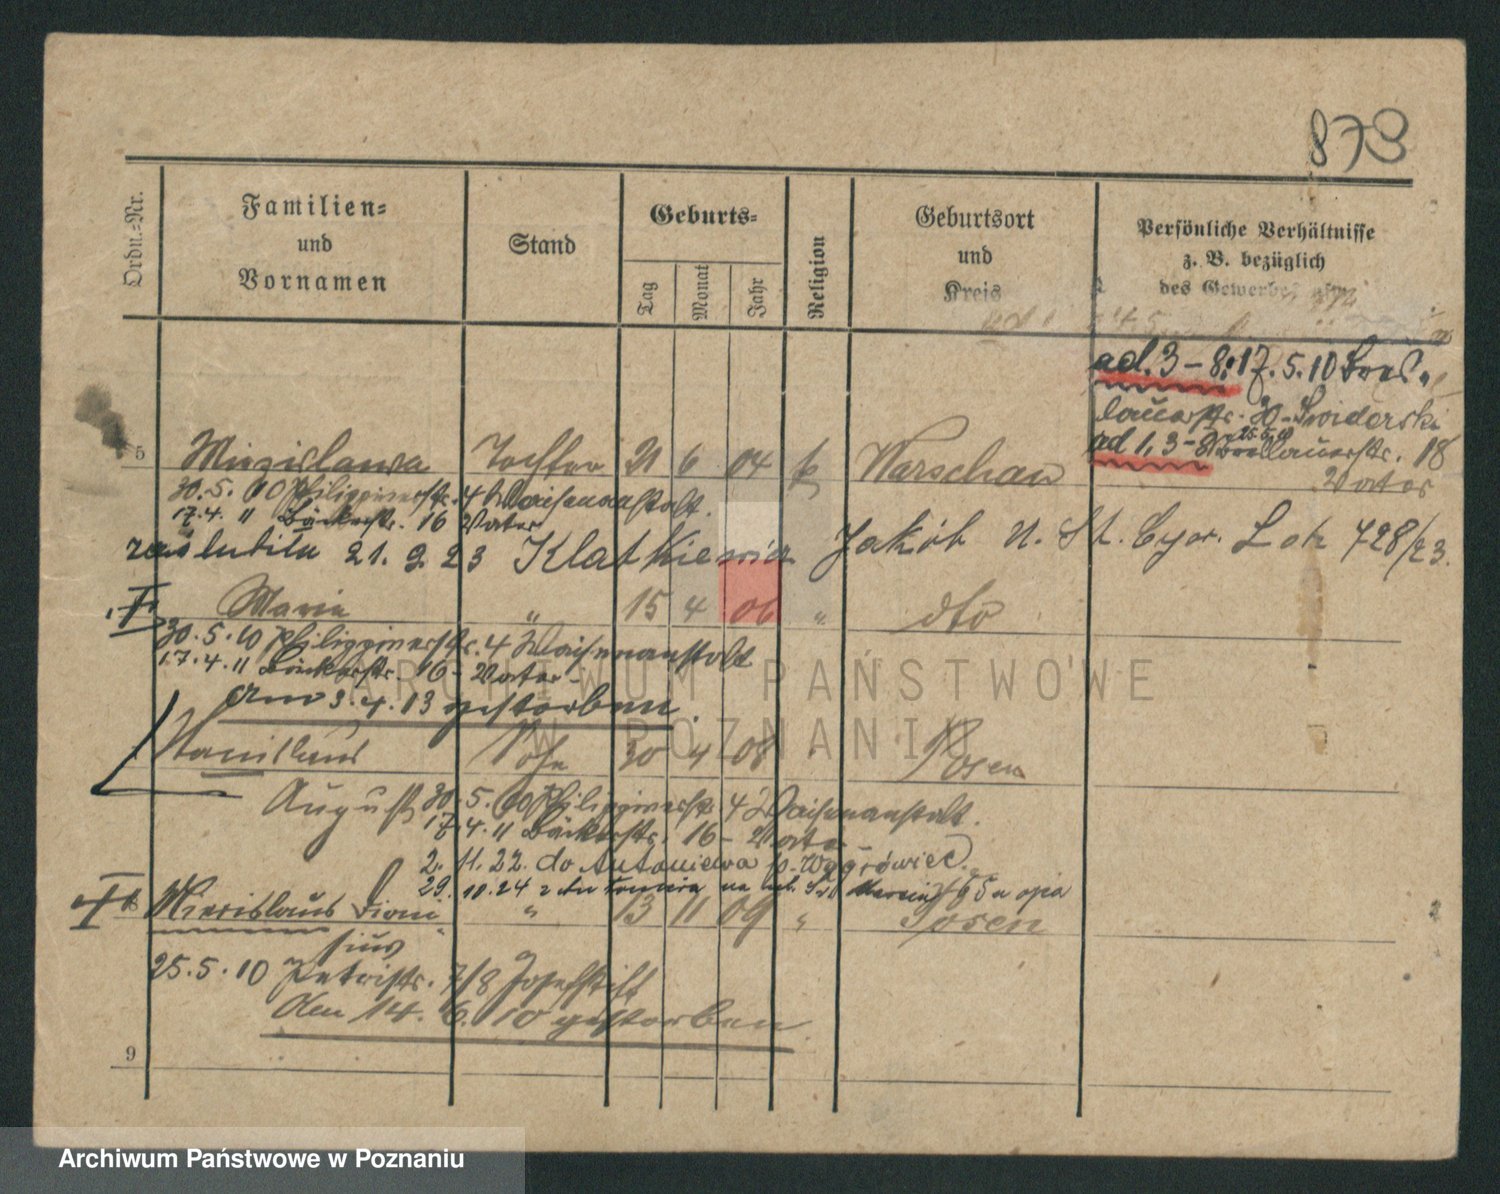 873
Ordn.-Nr.
Familien-
und
Vornamen
Stand
Geburts-
Tag
Monat
Jahr
Religion
Geburtsort
und
Kreis
Persönliche Verhältnisse
z. B. bezüglich
des Gewerbes usw.
ad. 3 - 8: 17. 5. 10 Bres-
lauerstr. 30 - Swiderski
ad 1, 3 - 8 Breslauerstr. 18
25.5.10
Vater
5 Miezislawa Tochter 21 6 04 k Warschau
30. 5. 10 Philippinerstr. 4 Waisenanstalt.
17. 4. 11 Bäckerstr. 16 Vater
zaślubiła 21. 9. 23 Klatkiewicz Jakób U. St. Cyw. Lok 728/23.
Maria " 15 4 06 " dto
30. 5. 10 Philippinerstr. 4 Waisenanstalt
17. 4. 11 Bäckerstr. 16 - Vater -
am 3. 4. 13 gestorben.
Stanislaus Sohn 30 4 08 " Posen
August 30. 5. 10 Philippinerstr. 4 Waisenanstalt.
17. 4. 11 Bäckerstr. 16 - Vater -
2. 11. 22. do Antoniewa p. Wągrówiec.
29. 10. 24 z na Św. Marcin
8 Miezislaus Dioni- " 13 11 09 " Posen
sius
25. 5. 10 Petristr. 7/8 Josefstift
den 14. 6. 10 gestorben
9
ARCHIWUM PAŃSTWOWE
W POZNANIU
Archiwum Państwowe w Poznaniu